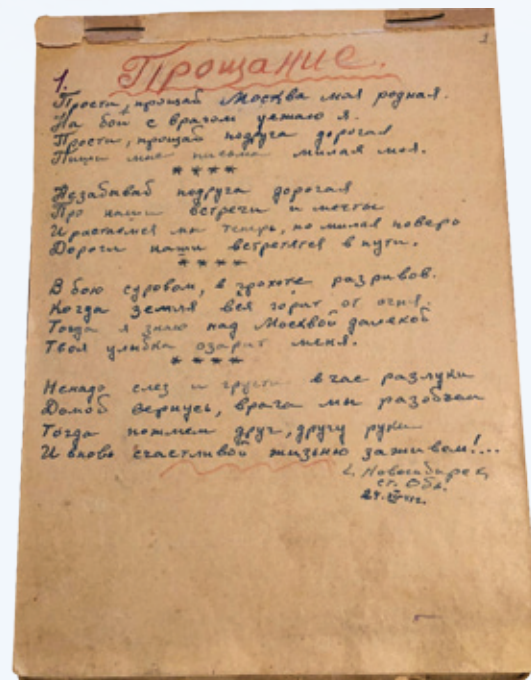 1
1. Прощание.
Прости, прощай Москва моя родная.
На бой с врагом уезжаю я.
Прости, прощай подруга дорогая
Пиши мне письма милая моя.
****
Незабывай подруга дорогая
Про наши встречи и мечты
И растаемся мы теперь, но милая поверь
Дороги наши встретятся в пути.
****
В бою суровом, в грохоте разривов.
Когда земля вся горит от огня.
Тогда я знаю над Москвой далекой
Твоя улыбка озарит меня.
****
Ненадо слез и грусти в час разлуки
Домой вернусь, врага мы разобьем
Тогда пожмем друг, другу руки
И вновь счастливой жизнью заживем!...
г. Новосибирск
ст. Обь.